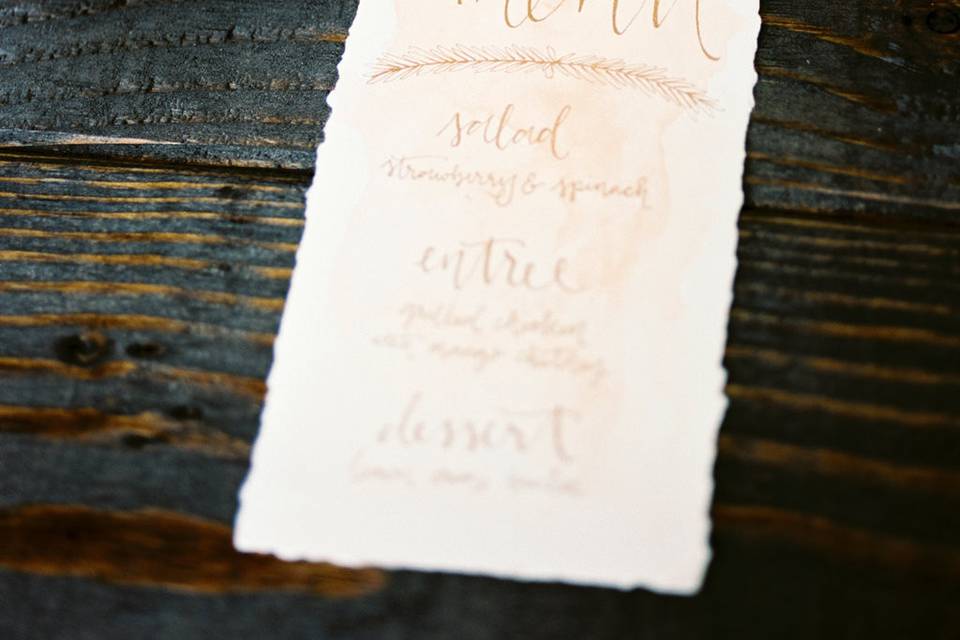 menu
salad
strawberry & spinach
entree
grilled chicken
w/ mango chutney
dessert